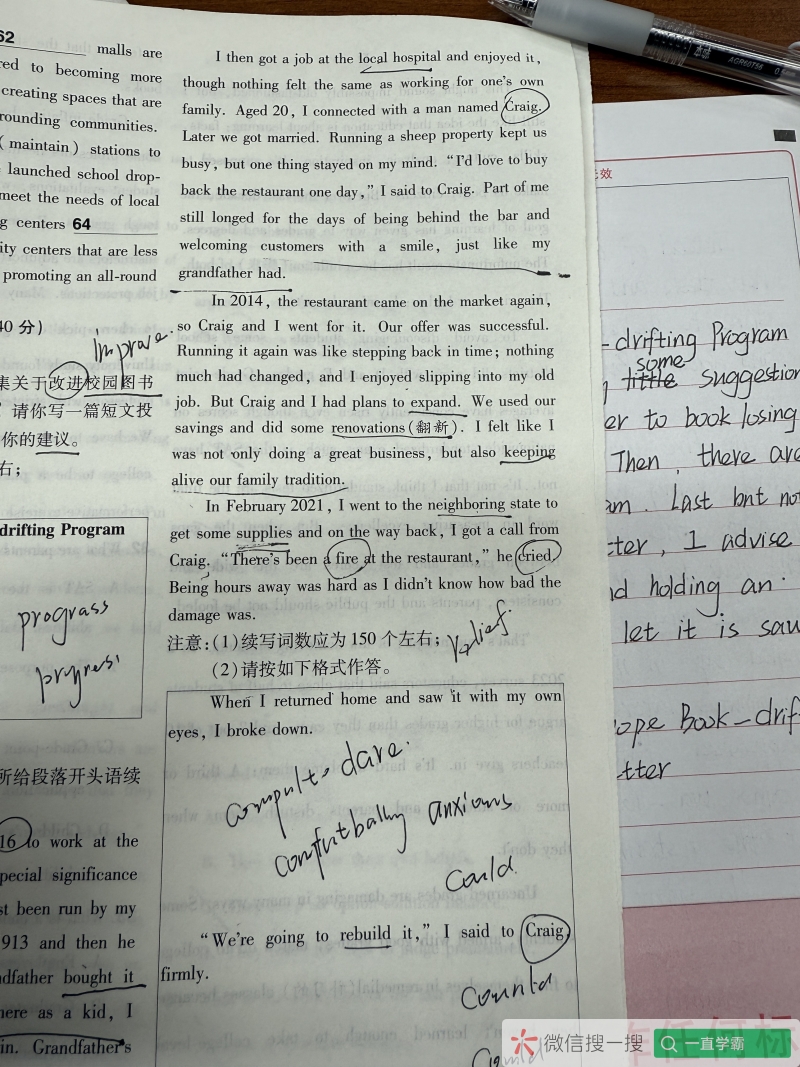 62
malls are
red to becoming more
creating spaces that are
rounding communities.
(maintain) stations to
launched school drop-
meet the needs of local
g centers 64
ity centers that are less
promoting an all-round
40 分)
improve.
集关于改进校园图书
请你写一篇短文投
你的建议。
右;
drifting Program
prograss
progress
所给段落开头语续
16 to work at the
pecial significance
st been run by my
913 and then he
dfather bought it
here as a kid, I
in. Grandfather's
I then got a job at the local hospital and enjoyed it,
though nothing felt the same as working for one's own
family. Aged 20, I connected with a man named Craig.
Later we got married. Running a sheep property kept us
busy, but one thing stayed on my mind. "I'd love to buy
back the restaurant one day," I said to Craig. Part of me
still longed for the days of being behind the bar and
welcoming customers with a smile, just like my
grandfather had.
In 2014, the restaurant came on the market again,
so Craig and I went for it. Our offer was successful.
Running it again was like stepping back in time; nothing
much had changed, and I enjoyed slipping into my old
job. But Craig and I had plans to expand. We used our
savings and did some renovations(翻新). I felt like I
was not only doing a great business, but also keeping
alive our family tradition.
In February 2021, I went to the neighboring state to
get some supplies and on the way back, I got a call from
Craig. "There's been a fire at the restaurant," he cried.
Being hours away was hard as I didn't know how bad the
damage was.
注意:(1)续写词数应为 150 个左右;
relief.
(2)请按如下格式作答。
When I returned home and saw it with my own
eyes, I broke down.
dare.
anxious
Could
"We're going to rebuild it," I said to Craig
firmly.
AGR60756
效
-drifting Program
some
little suggestion
er to book losing
Then, there are
am. Last but no
tter, I advise
nd holding an
let it is sau
ope Book-drif
tter
作任何标
微信搜一搜
一直学霸